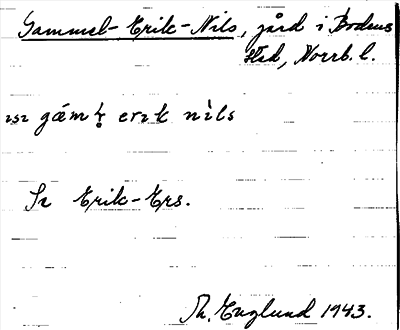 Gammel-Erik-Nils, gård i Bodens
Hsd, Norrb. l.
gám erik nìls
Se Erik-Ers.
Th. Englund 1943.